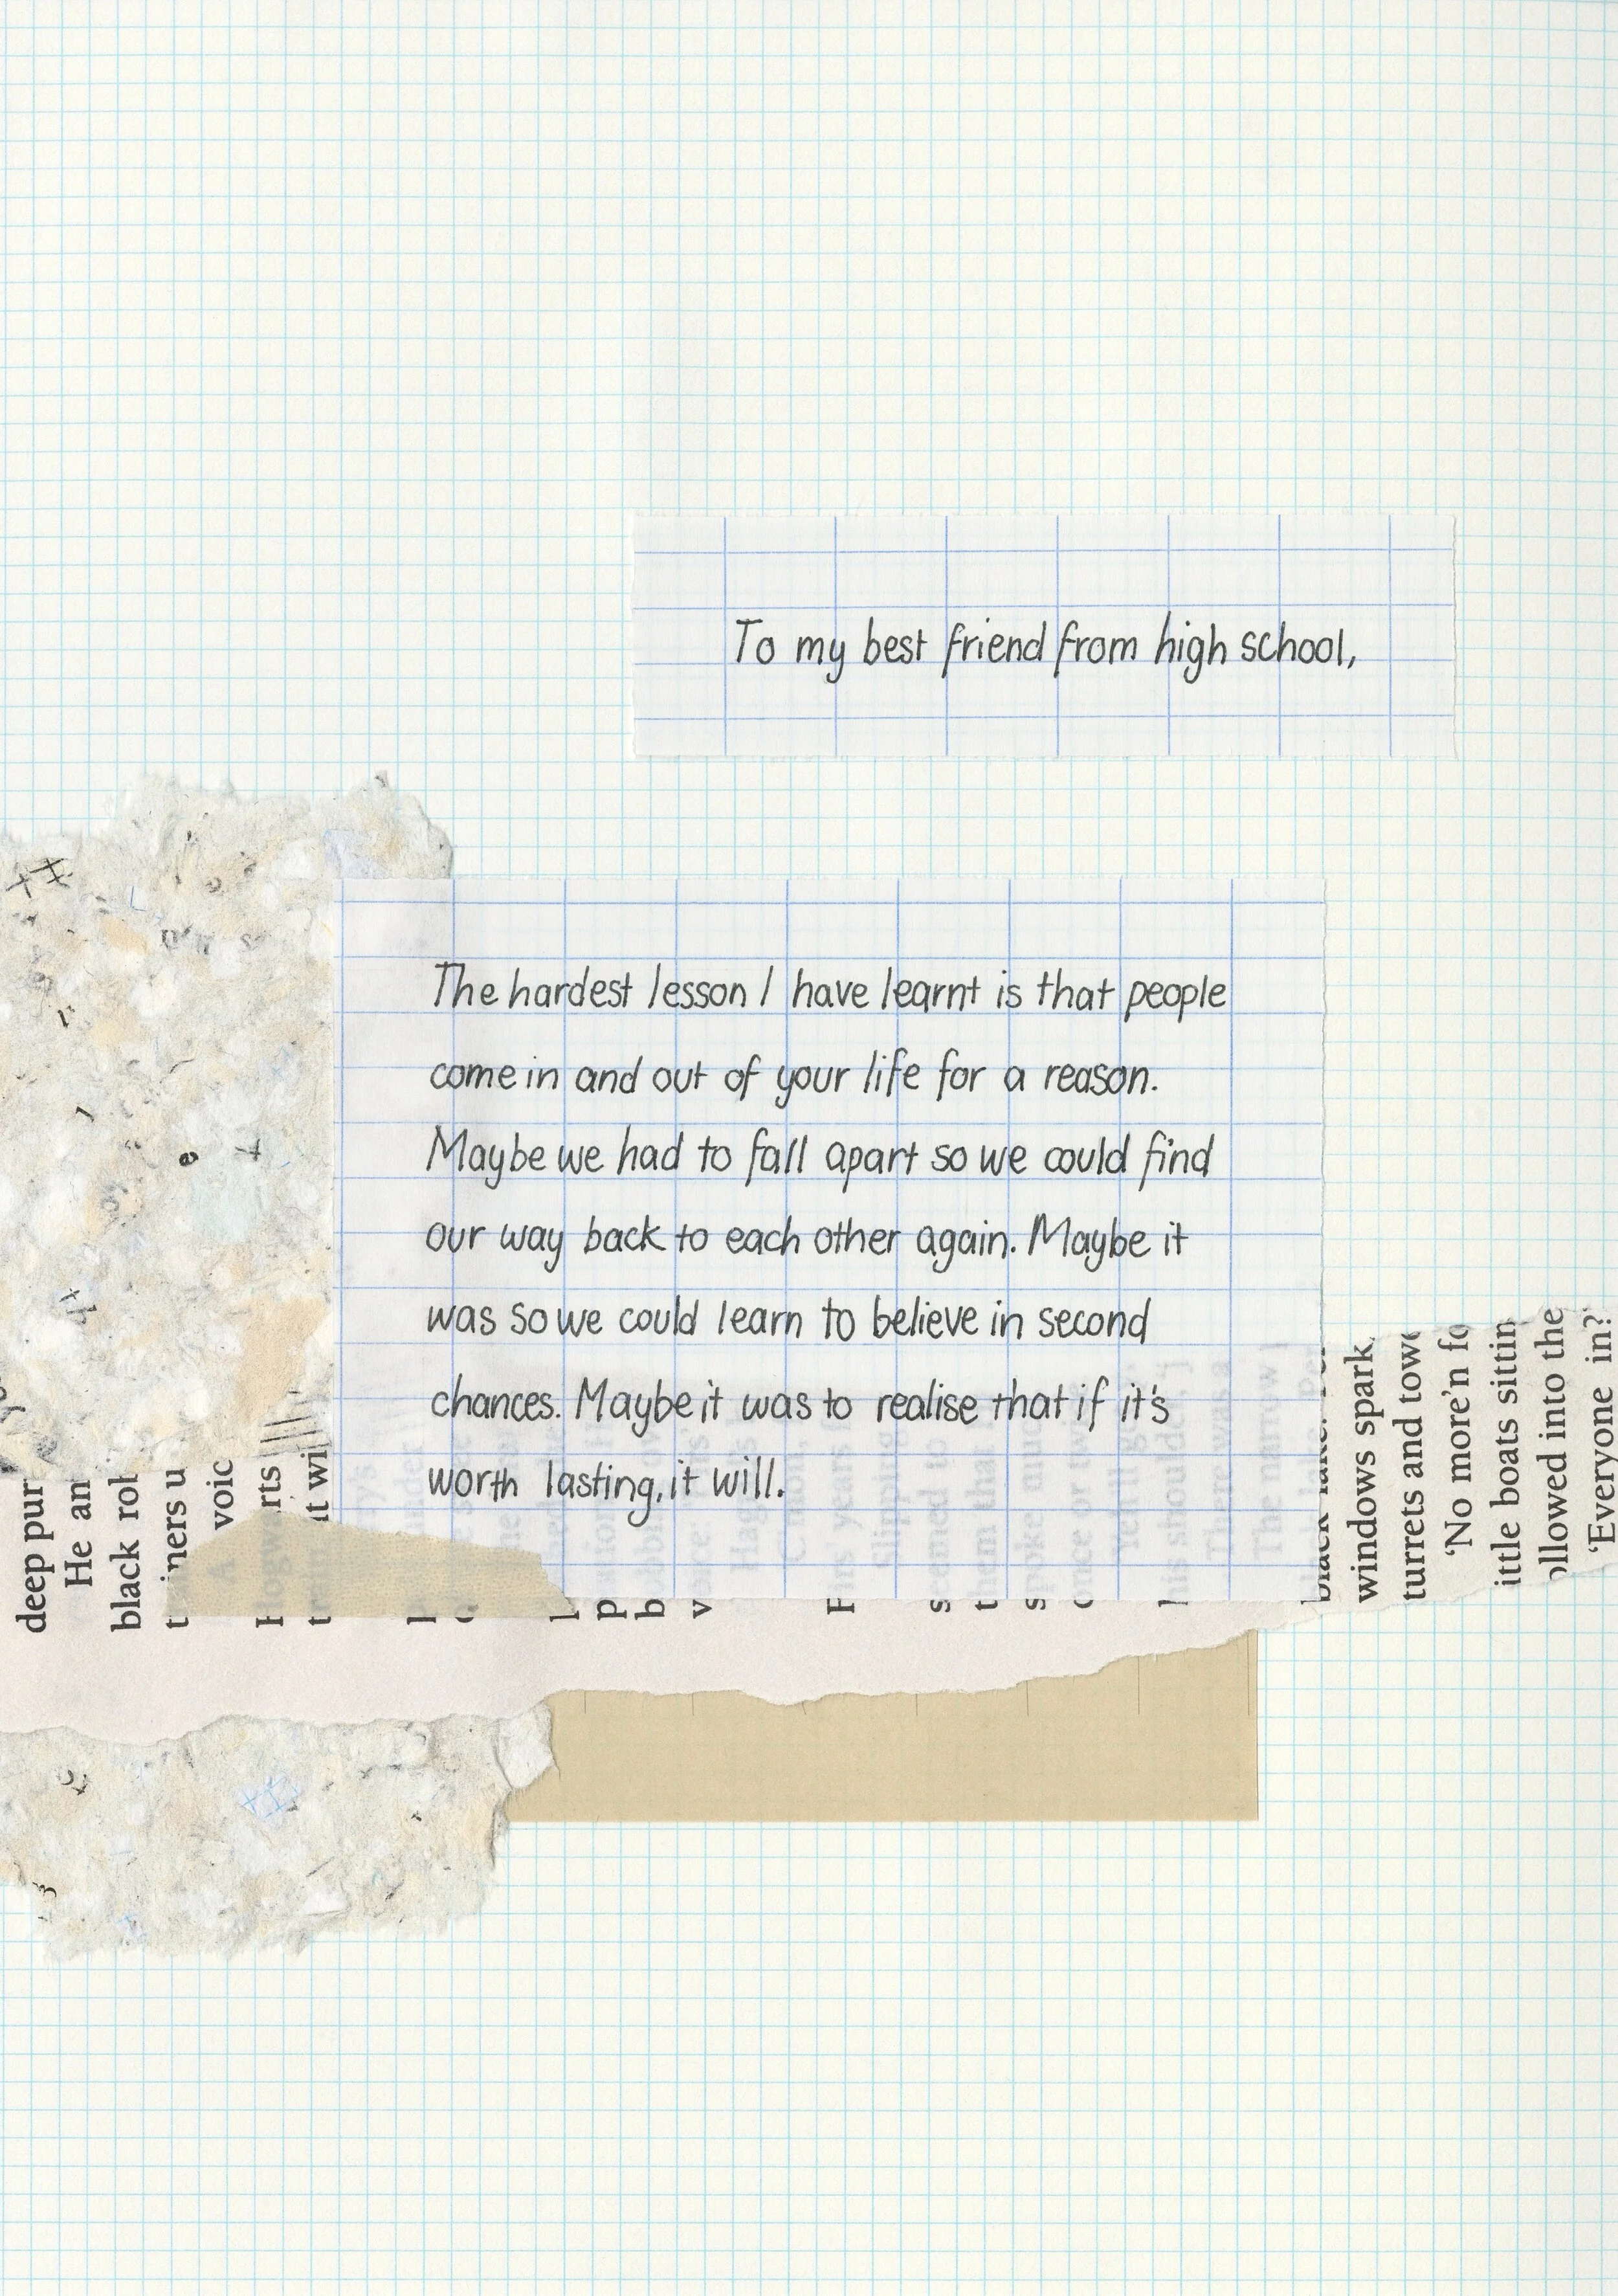 To my best friend from high school,
The hardest lesson I have learnt is that people
come in and out of your life for a reason.
Maybe we had to fall apart so we could find
our way back to each other again. Maybe it
was so we could learn to believe in second
chances. Maybe it was to realise that if it's
worth lasting, it will.
deep pur
He an
black rob
u
voic
rts
it wi
windows spark
turrets and towe
'No more'n fo
ittle boats sittin
ollowed into the
'Everyone in?